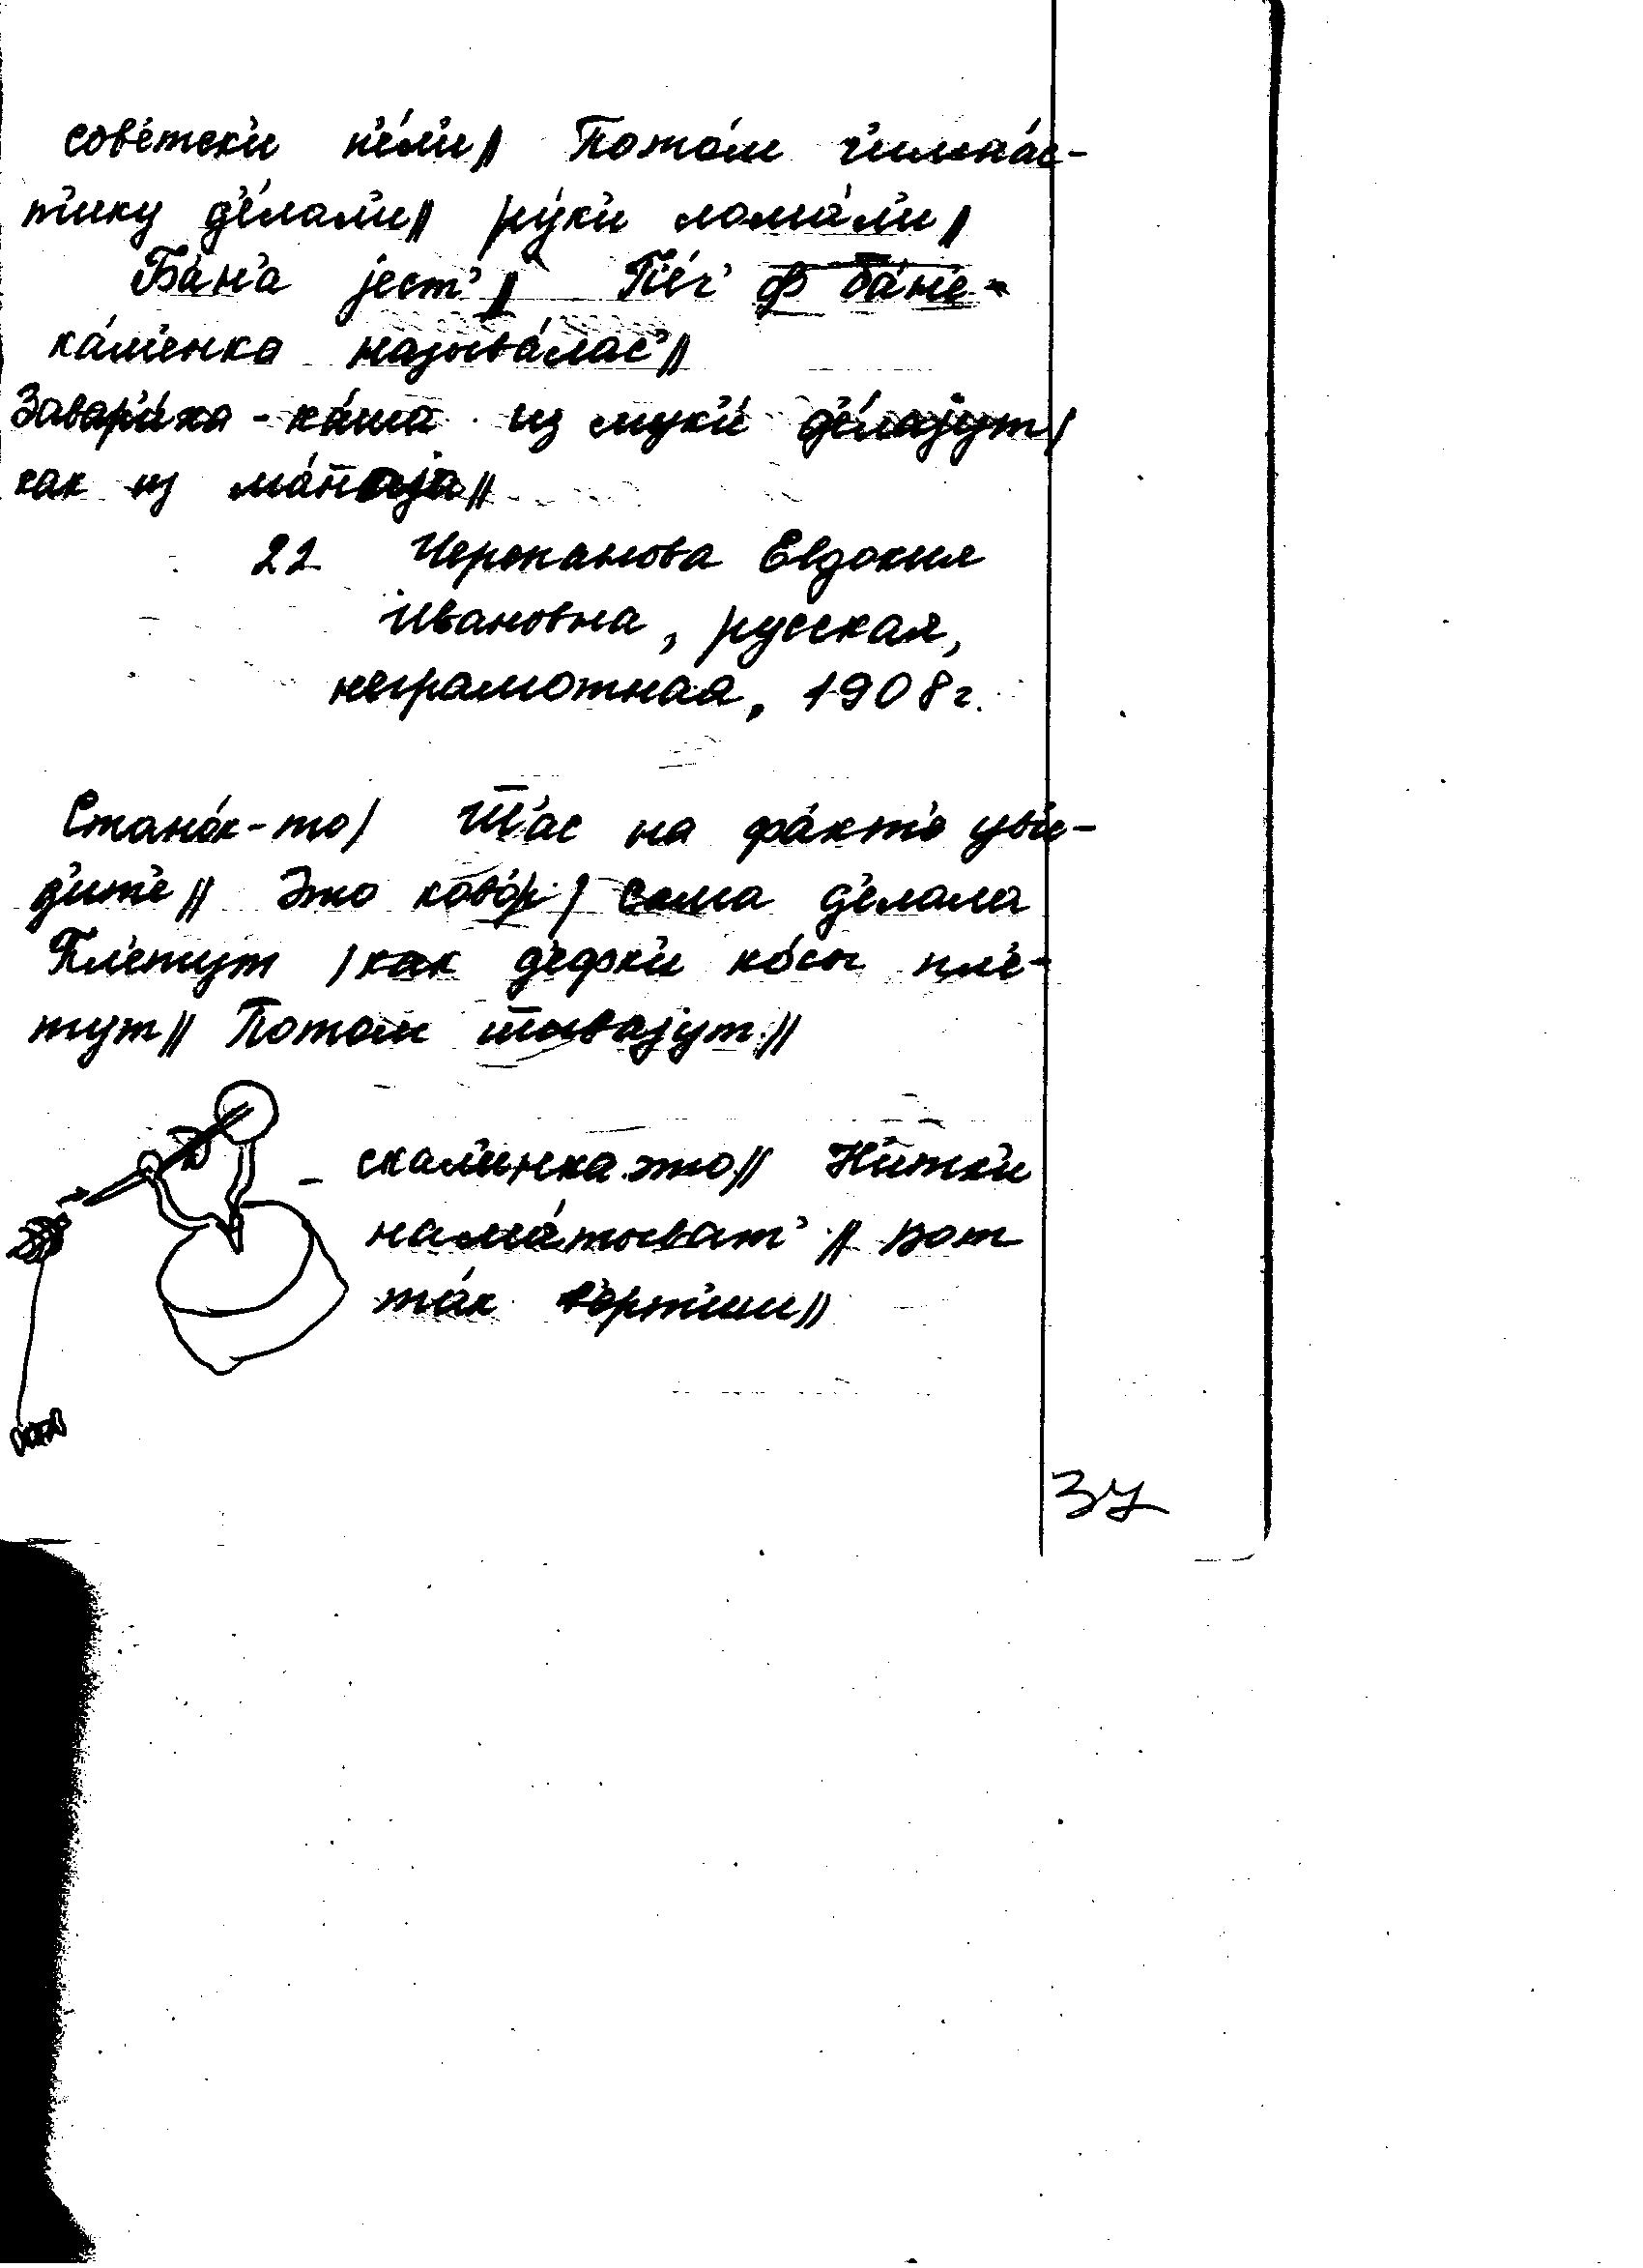 сове́тск'и п'е́л'и// Пото́м г'имна́с-
т'ику д'е́лал'и// ру́к'и лома́л'и//
Ба́н'а jест'// П'е́ч' ф ба́н'е -
ка́м'енка называ́лас'//
Завар'и́ха - ка́ша из мук'и́ д'е́лаjут/
как из ма́н̄аjа//
22 Черепанова Евдокия
Ивановна, русская,
неграмотная, 1908 г.
Стано́к-то/ Ш̄'ас на фа́кт'е ув'и́-
д'ит'е// Это ков'о́р/ сама д'елала
Пл'етут /как д'ефк'и ко́сы пл'е-
тут// Потом шывајут//
- скал'инка это// Н'и́тк'и
нама́тыват'// Вот
та́к в'ерт'иш//